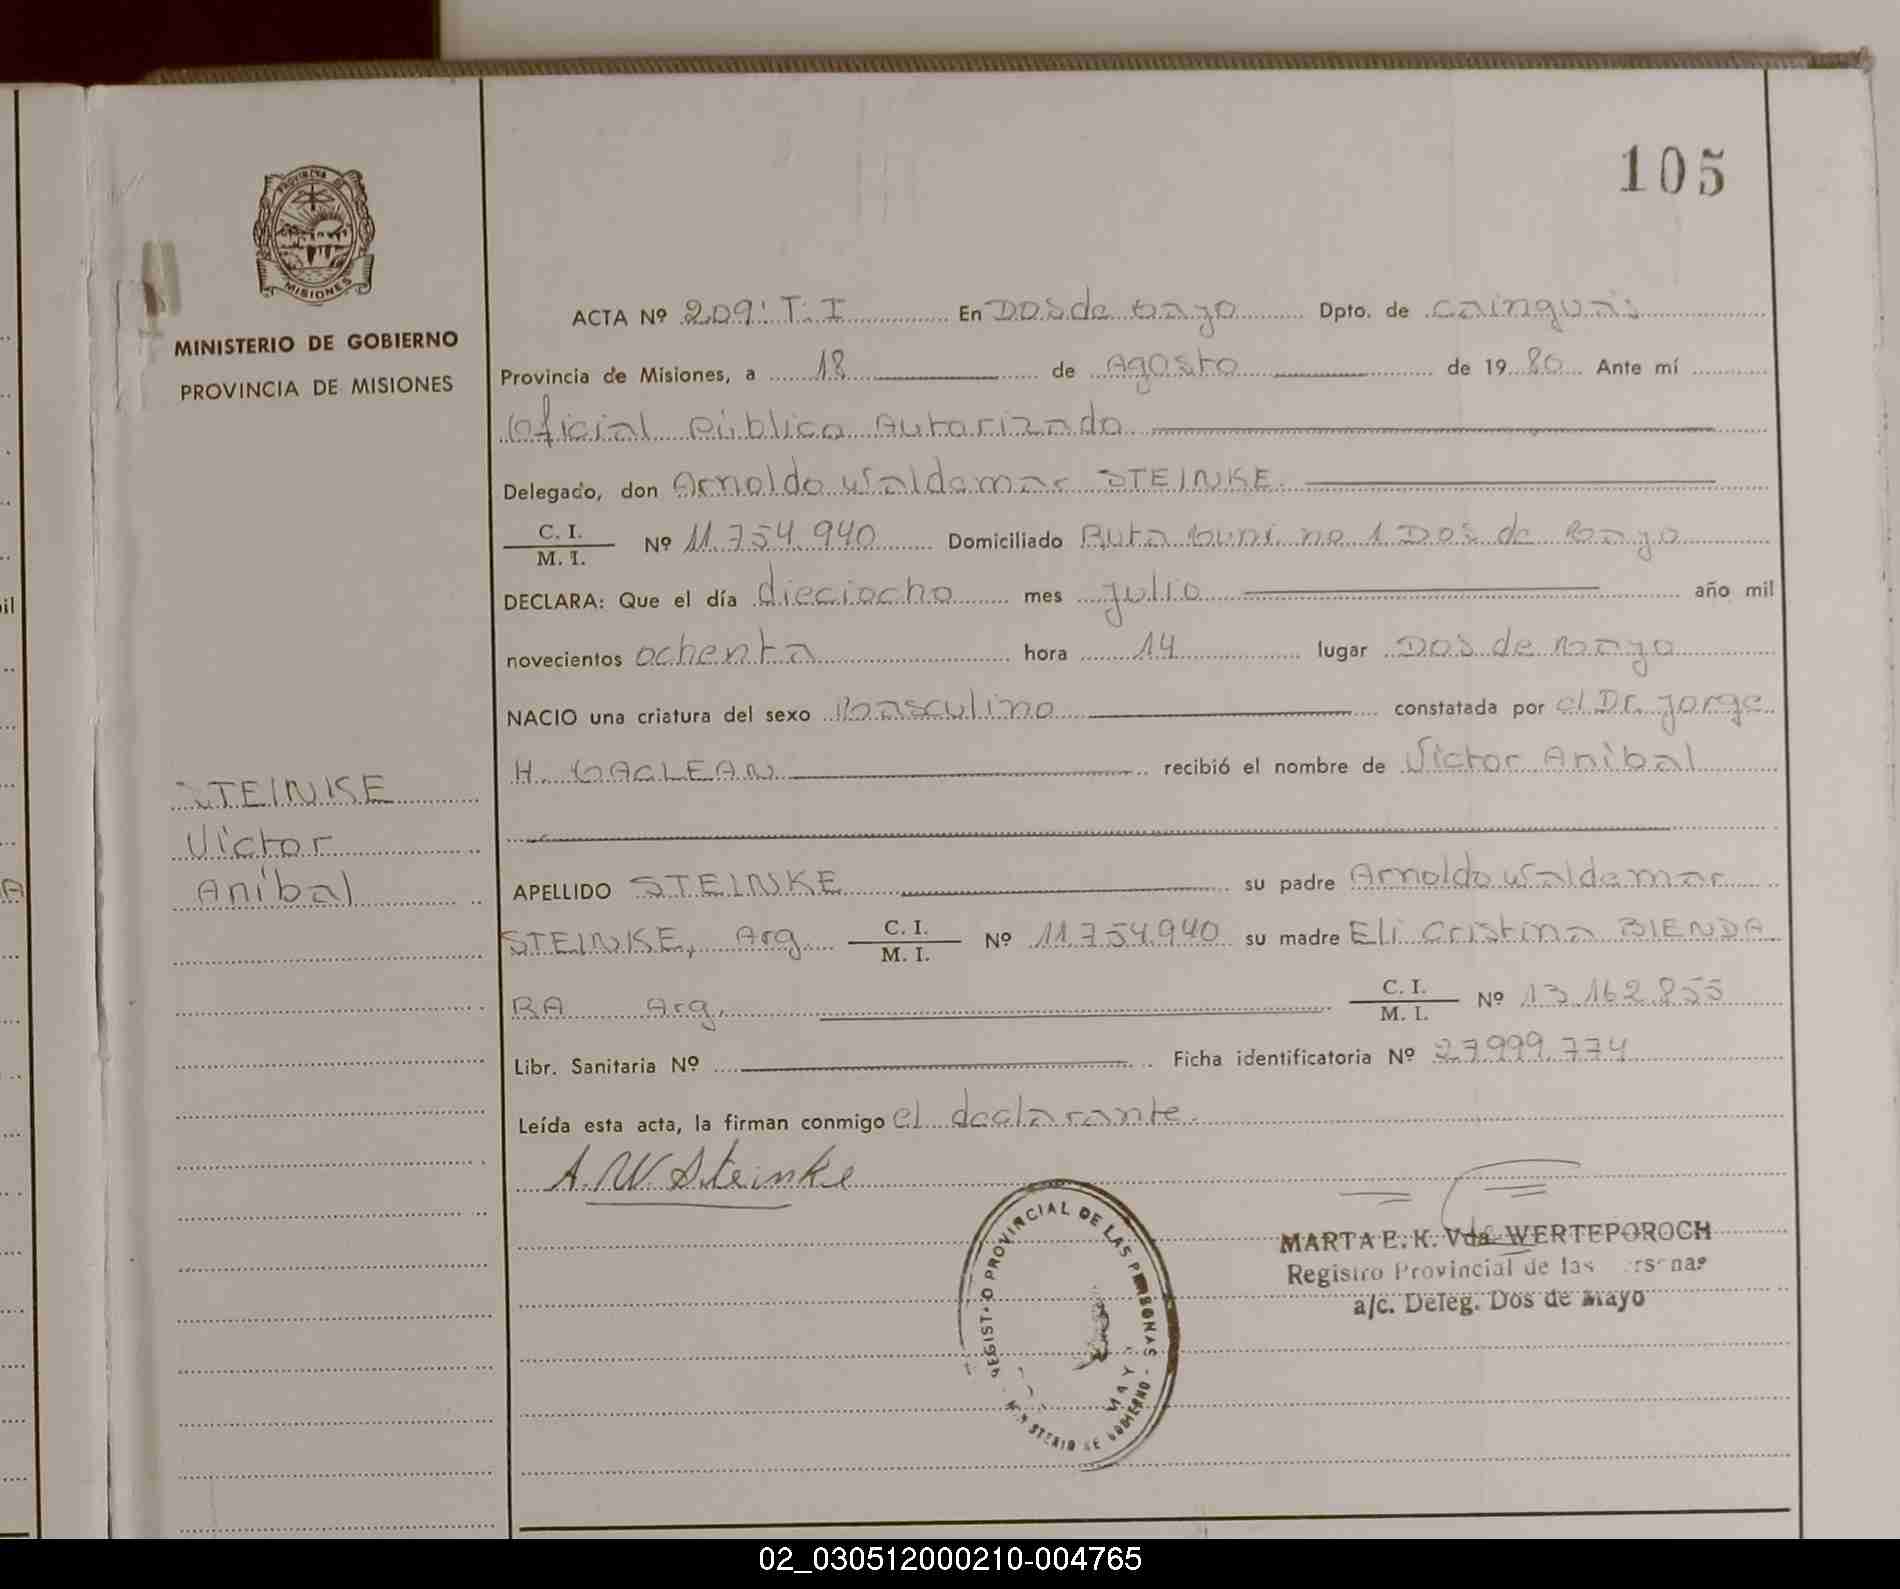 105
PROVINCIA DE
MISIONES
MINISTERIO DE GOBIERNO
PROVINCIA DE MISIONES
STEINKE
Victor
Anibal
ACTA Nº 209: T: I En Dos de Mayo Dpto. de Cainguás
Provincia de Misiones, a 18 de Agosto de 1980 Ante mí
Oficial Público Autorizado
Delegado, don Arnoldo Waldemar STEINKE
C. I.
M. I. Nº 11.754.940 Domiciliado Ruta Muni. no 1 Dos de Mayo
DECLARA: Que el día dieciocho mes julio año mil
novecientos ochenta hora 14 lugar Dos de Mayo
NACIO una criatura del sexo Masculino constatada por el Dr. Jorge
H. MACLEAN recibió el nombre de Victor Anibal
APELLIDO STEINKE su padre Arnoldo Waldemar
STEINKE, Arg. C. I.
M. I. Nº 11.754.940 su madre Eli Cristina BIENDA
RA Arg. C. I.
M. I. Nº 13.162.855
Libr. Sanitaria Nº Ficha identificatoria Nº 27.999.774
Leída esta acta, la firman conmigo el declarante.
A. W. Steinke
REGISTRO PROVINCIAL DE LAS PERSONAS
MAY
MINISTERIO DE GOBIERNO
MARTA E. K. Vda. WERTEPOROCH
Registro Provincial de las
a/c. Deleg. Dos de Mayo
il
A
02_030512000210-004765